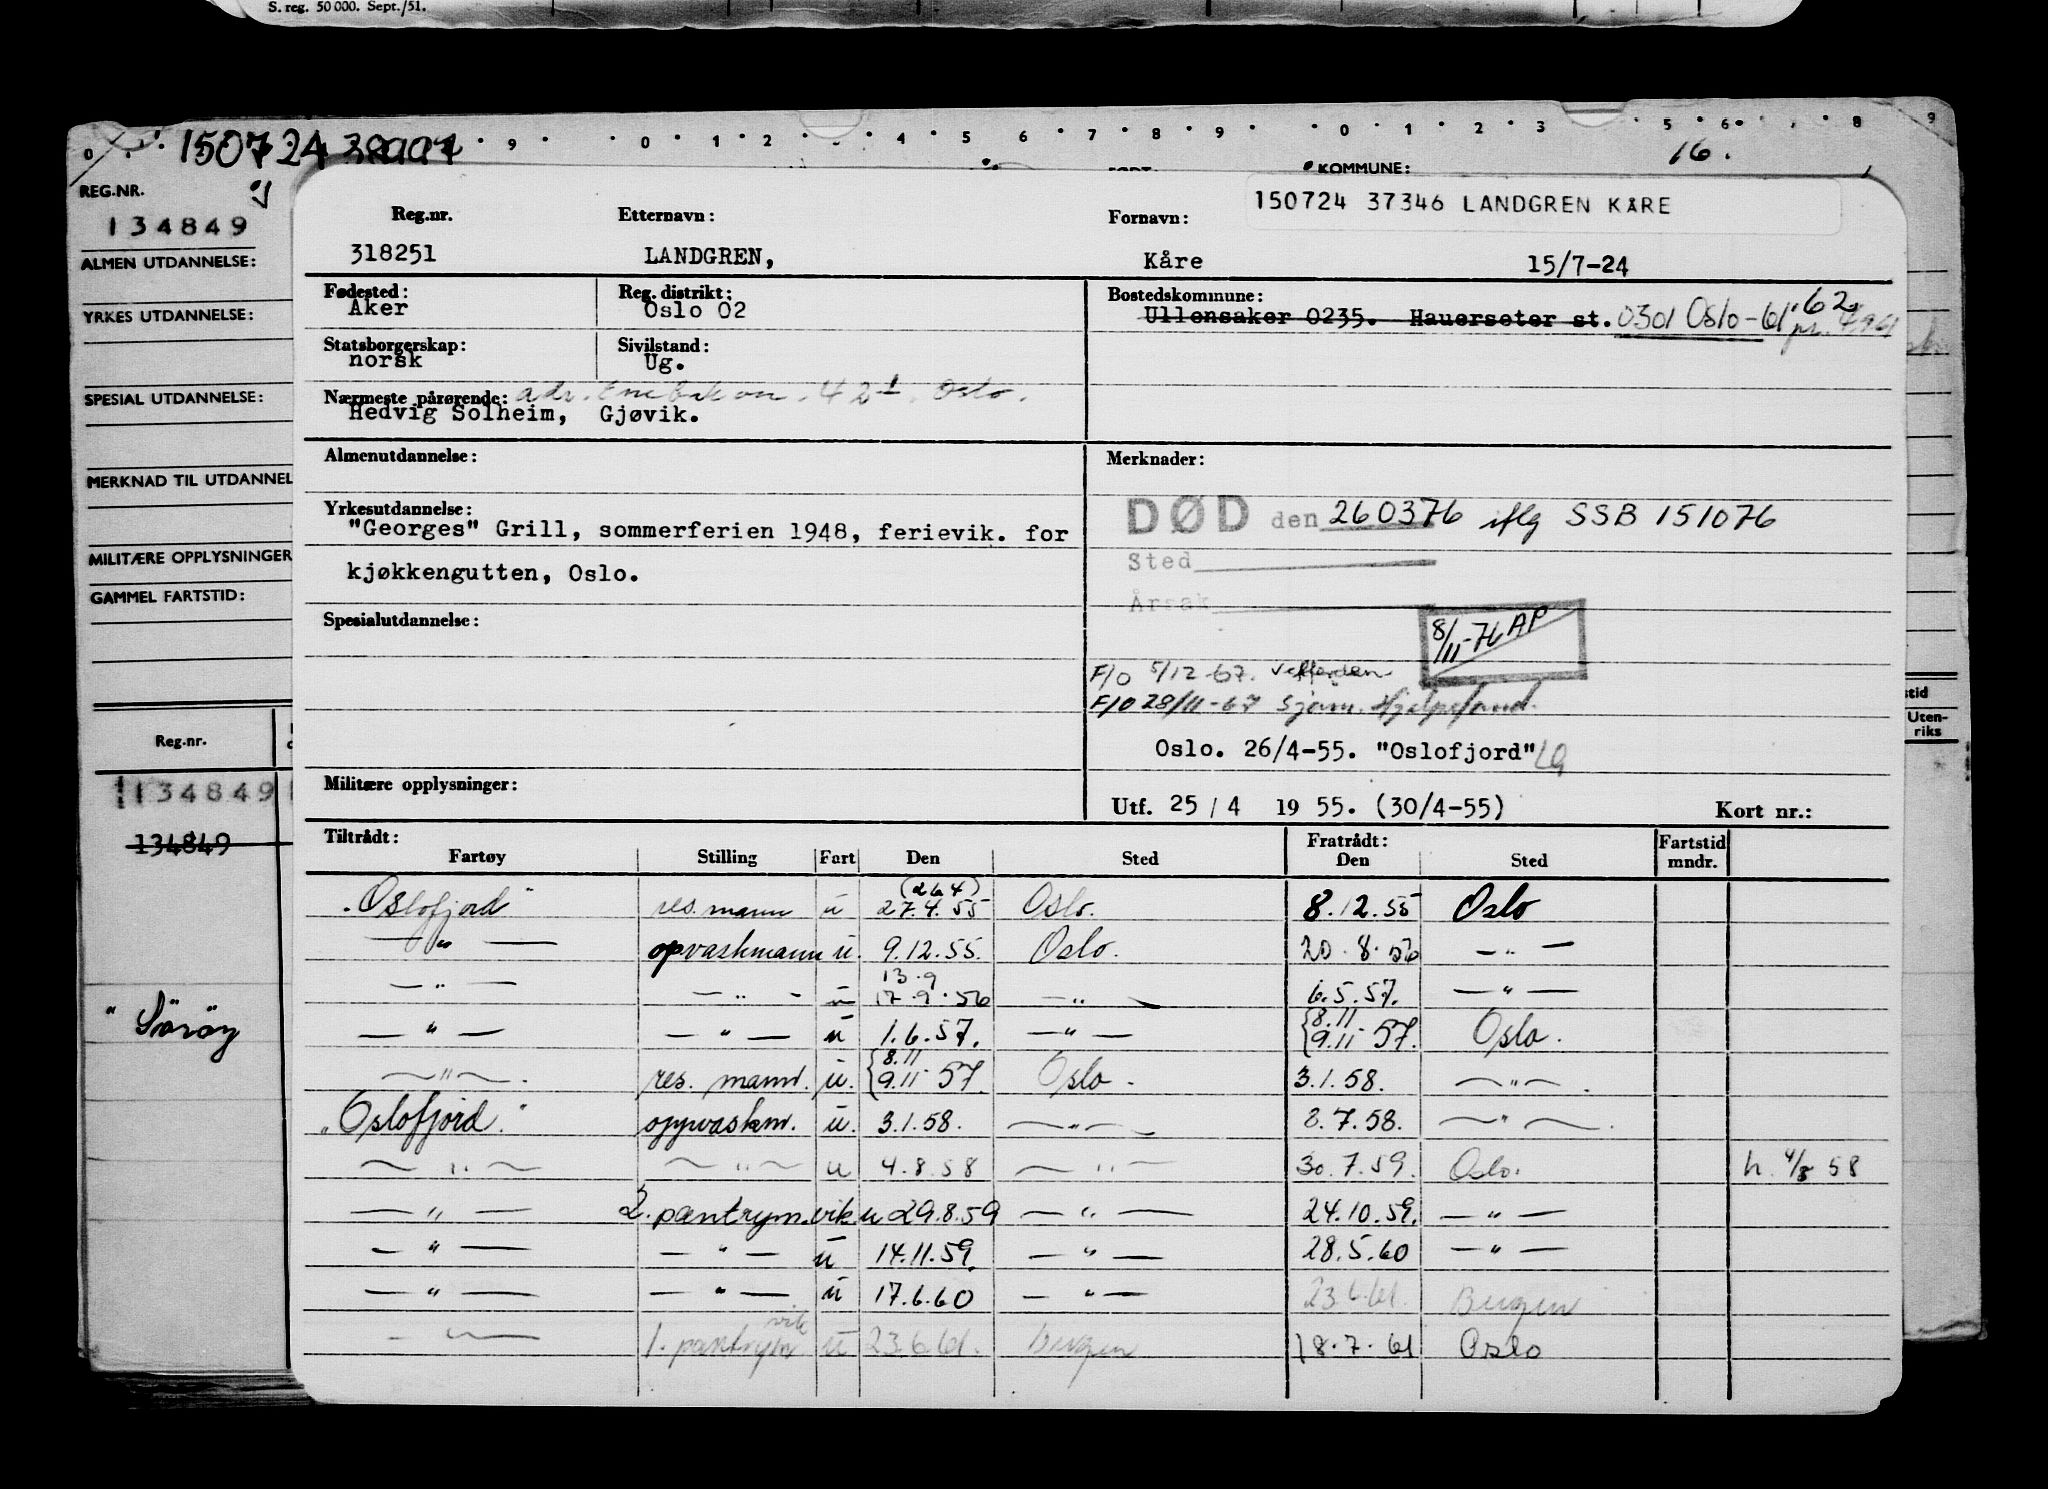 S. reg. 50 000. Sept./51.
0 9 0 1 2 4 5 6 7 8 9 0 1 2 3 5 6 8 9
150724
16.
REG.NR.
KOMMUNE:
134849
ALMEN UTDANNELSE:
YRKES UTDANNELSE:
SPESIAL UTDANNELSE:
MERKNAD TIL UTDANNEL
MILITÆRE OPPLYSNINGER
GAMMEL FARTSTID:
Reg.nr.
134849
134849
"Söröy
stid
Uten-
riks
150724 37346 LANDGREN KÅRE
Reg.nr. Etternavn: Fornavn:
318251 LANDGREN, Kåre 15/7-24
Fødested: Reg. distrikt: Bostedskommune:
Aker Oslo 02 Ullensaker 0235. Hauerseter st. 0301 Oslo-61. 62
Statsborgerskap: Sivilstand:
norsk Ug.
Nærmeste pårørende: adr. 42 Oslo.
Hedvig Solheim, Gjøvik.
Almenutdannelse: Merknader:
Yrkesutdannelse: DØD den 260376 iflg SSB 151076
"Georges" Grill, sommerferien 1948, ferievik. for
kjøkkengutten, Oslo.
Sted
Årsak
Spesialutdannelse:
8/11-76 AP
F/O 5/12-67. Velferden
F/O 28/11-67 Sjøm. Hjelpefond.
Oslo. 26/4-55. "Oslofjord"
Militære opplysninger:
Utf. 25 / 4 19 55. (30/4-55) Kort nr.:
Tiltrådt: Fratrådt: Fartstid
Fartøy Stilling Fart Den Sted Den Sted mndr.
(26 4)
"Oslofjord" res. mann u 27.4.55 Oslo. 8.12.55 Oslo
— " — opvaskmann u. 9.12.55. Oslo. 20.8.56 — " —
13.9
— " — — " — u 17.9.56 — " — 6.5.57. — " —
— " — — " — u 1.6.57. — " — {8.11 9.11 57. Oslo.
— " — res. mann. u. {8.11 9.11 57. Oslo. 3.1.58. — " —
"Oslofjord" oppvaskm. u. 3.1.58. — " — 8.7.58. — " —
— " — — " — u 4.8.58 — " — 30.7.59. Oslo. h. 4/8 58
— " — 2. pantrym. vik. u 29.8.59 — " — 24.10.59. — " —
— " — — " — u 14.11.59. — " — 28.5.60 — " —
— " — — " — u 17.6.60 — " — 23.6.61. Bergen
— " — 1. pantrym vik u 23.6.61. Bergen 18.7.61 Oslo